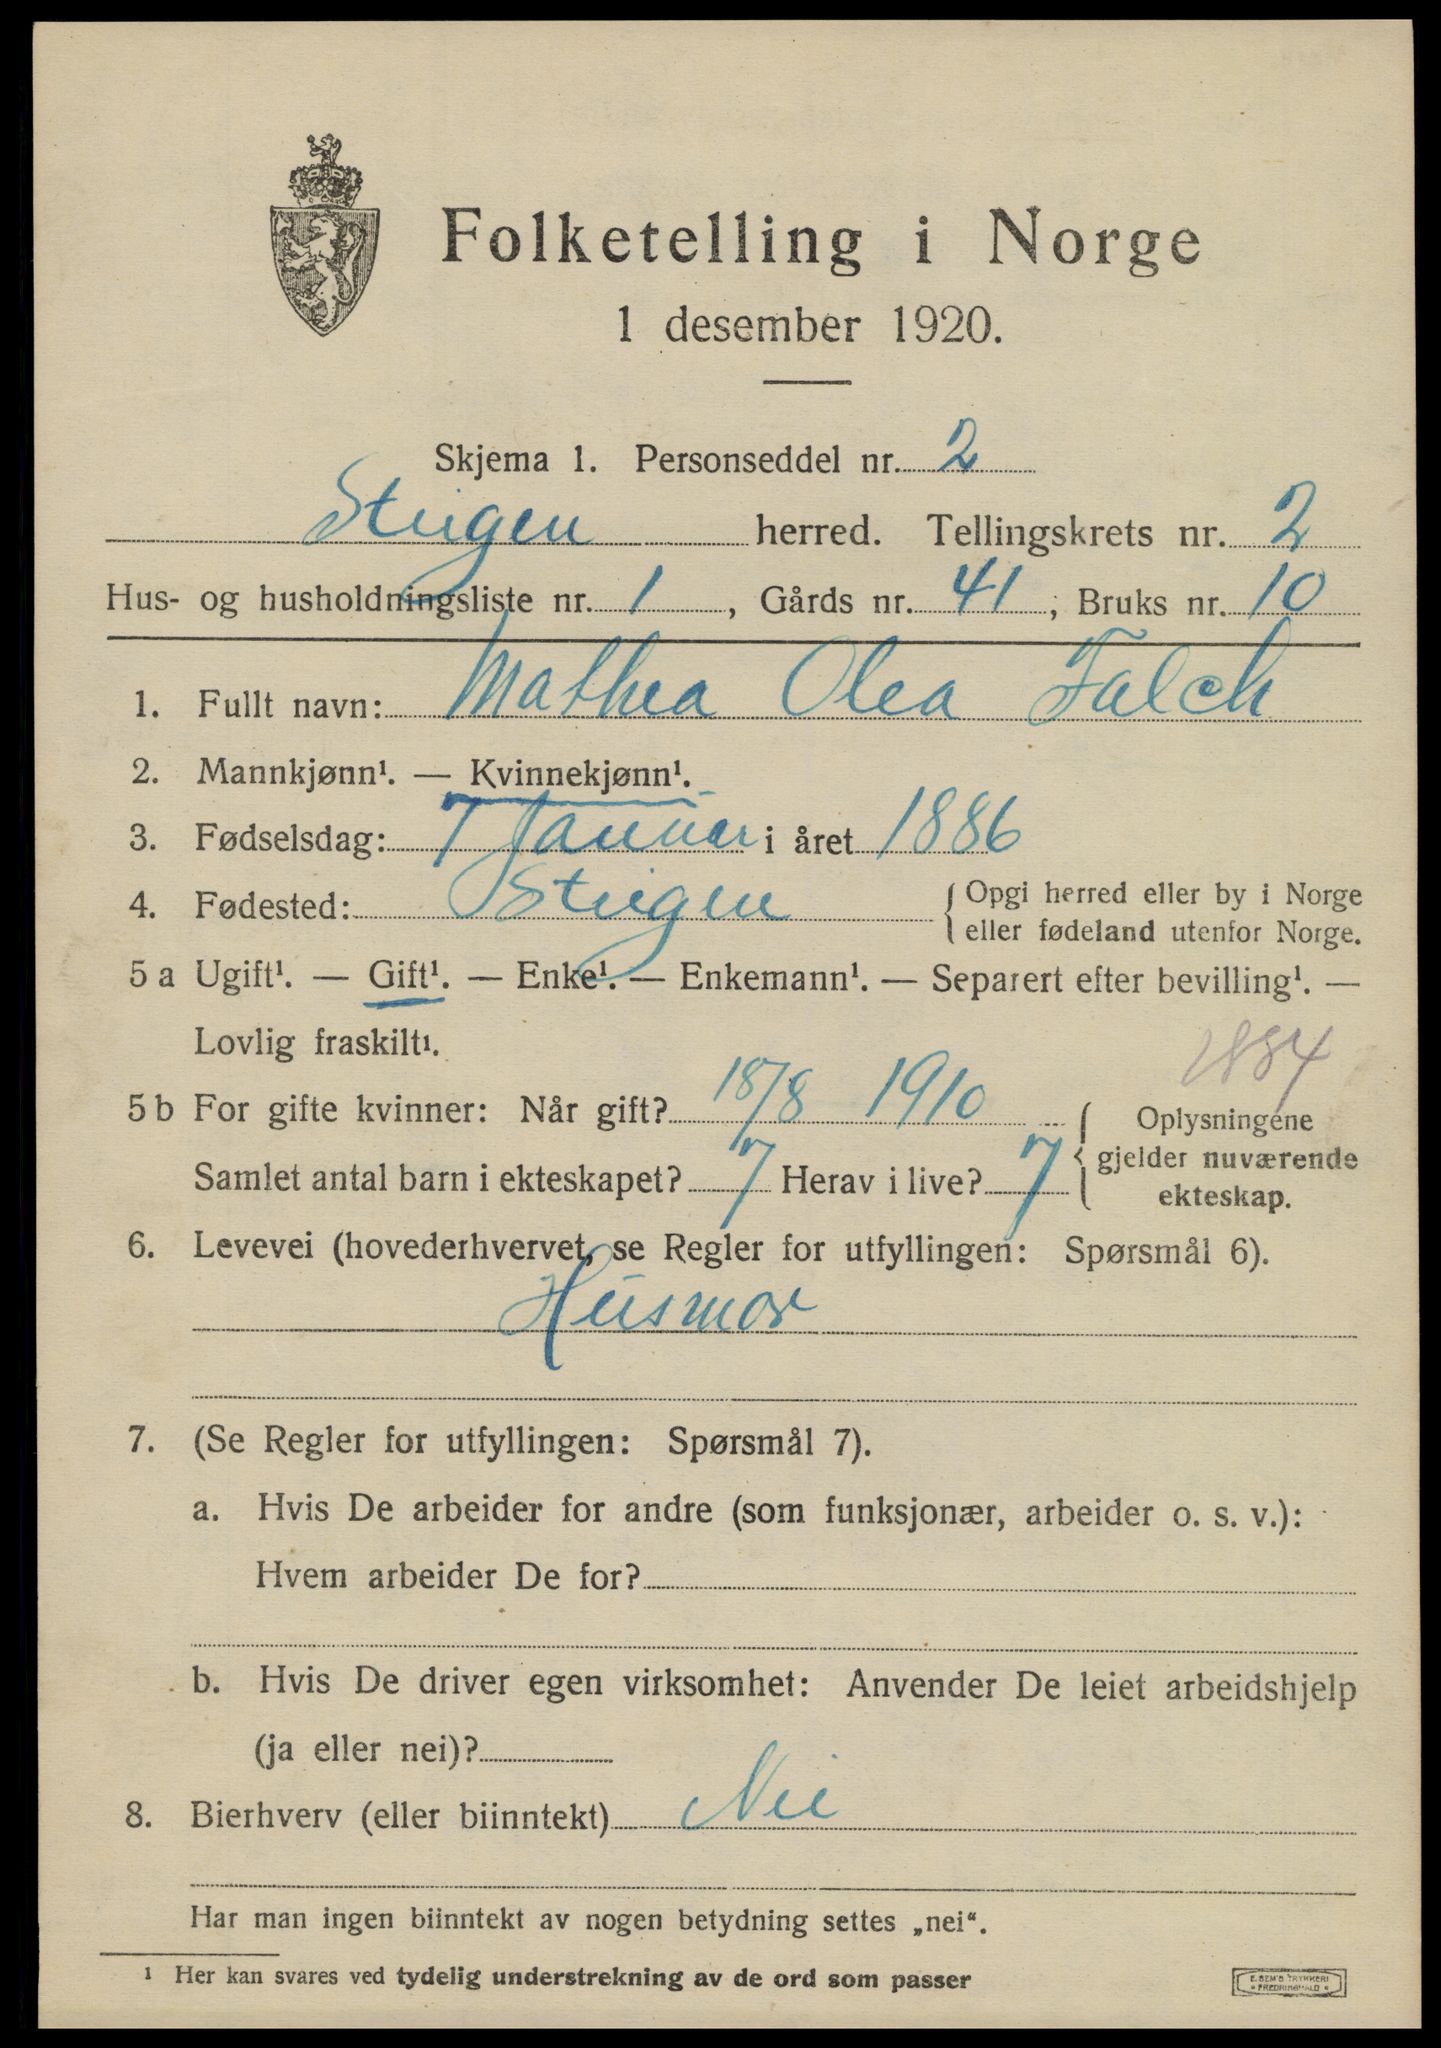 Folketelling i Norge
1 desember 1920.
Skjema 1. Personseddel nr. 2
Steigen herred. Tellingskrets nr. 2
Hus- og husholdningsliste nr. 1, Gårds nr. 41, Bruks nr. 10
1. Fullt navn: Mathea Olea Falch
2. Mannkjønn¹. — Kvinnekjønn¹.
3. Fødselsdag: 7 Januar i året 1886
4. Fødested: Steigen { Opgi herred eller by i Norge
eller fødeland utenfor Norge.
5 a Ugift¹. — Gift¹. — Enke¹. — Enkemann¹. — Separert efter bevilling¹. —
Lovlig fraskilt¹.
1884
5 b For gifte kvinner: Når gift? 18/8 1910
Samlet antal barn i ekteskapet? 7 Herav i live? 7
{ Oplysningene
gjelder nuværende
ekteskap.
6. Levevei (hovederhvervet, se Regler for utfyllingen: Spørsmål 6).
Husmor
7. (Se Regler for utfyllingen: Spørsmål 7).
a. Hvis De arbeider for andre (som funksjonær, arbeider o. s. v.):
Hvem arbeider De for?
b. Hvis De driver egen virksomhet: Anvender De leiet arbeidshjelp
(ja eller nei)?
8. Bierhverv (eller biinntekt) Nei
Har man ingen biinntekt av nogen betydning settes „nei“.
¹ Her kan svares ved tydelig understrekning av de ord som passer
E. SEM'S TRYKKERI
• FREDRIKSHALD •